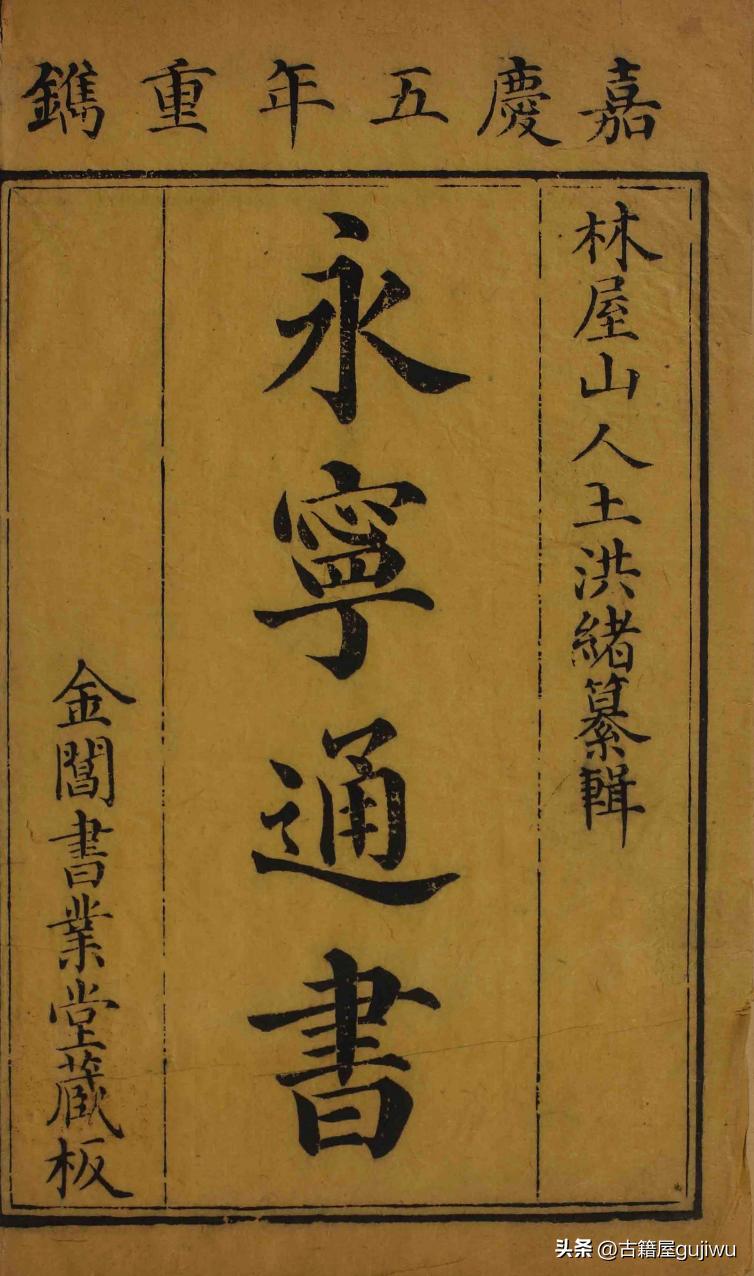 嘉慶五年重鐫
林屋山人王洪緒纂輯
永寧通書
金閶書業堂蔵板
头条 @古籍屋gujiwu